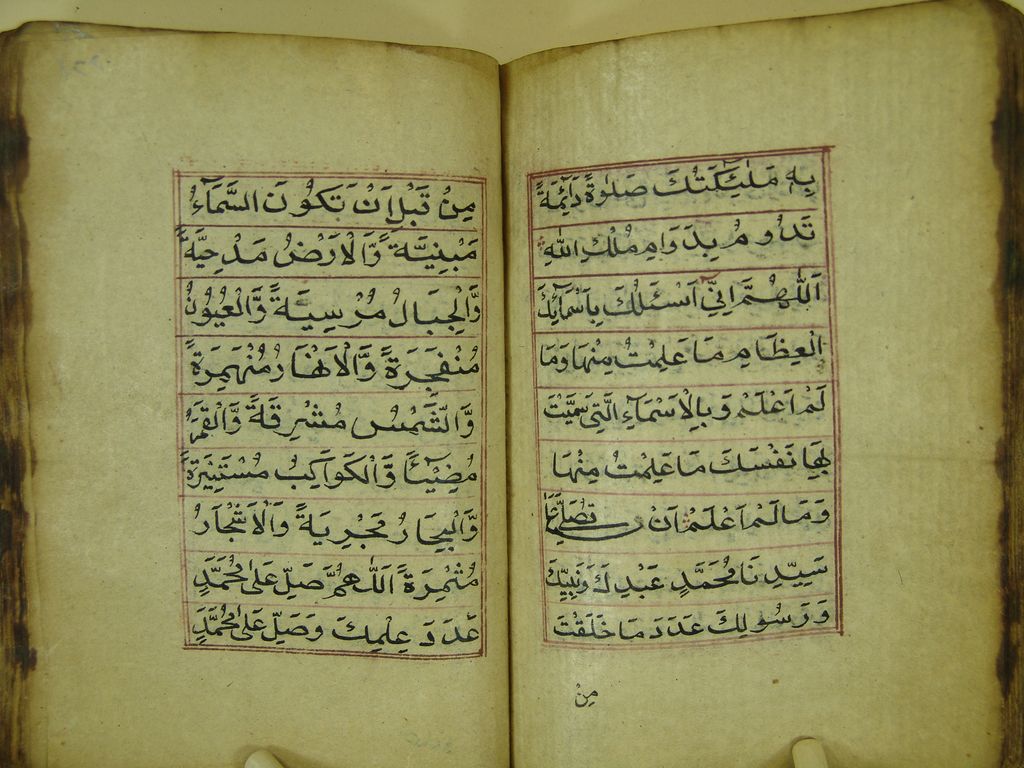 بِهِ مَلٰٓئِكَتُكَ صَلٰوةً دَآئِمَةً
تَدُومُ بِدَوَامِ مُلْكِ اللّٰهِ
اَللّٰهُمَّ اِنِّيٓ اَسْئَلُكَ بِاَسْمَآئِكَ
الْعِظَامِ مَا عَلِمْتُ مِنْهَا وَمَا
لَمْ اَعْلَمْ وَبِالْاَسْمَآءِ الَّتِي سَمَّيْتَ
بِهَا نَفْسَكَ مَا عَلِمْتُ مِنْهَا
وَمَا لَمْ اَعْلَمْ اَنْ تُصَلِّيَ عَلٰى
سَيِّدِنَا مُحَمَّدٍ عَبْدِكَ وَنَبِيِّكَ
وَرَسُولِكَ عَدَدَ مَا خَلَقْتَ
مِنْ
مِنْ قَبْلِ اَنْ تَكُونَ السَّمَآءُ
مَبْنِيَّةً وَّالْاَرْضُ مَدْحِيَّةً
وَّالْجِبَالُ مُرْسِيَةً وَّالْعُيُونُ
مُنْفَجِرَةً وَّالْاَنْهَارُ مُنْهَمِرَةً
وَّالشَّمْسُ مُشْرِقَةً وَّالْقَمَرُ
مُضِيْئًا وَّالْكَوَاكِبُ مُسْتَنِيْرَةً
وَّالْبِحَارُ مُجْرِيَةً وَّالْاَشْجَارُ
مُثْمِرَةً اَللّٰهُمَّ صَلِّ عَلٰى مُحَمَّدٍ
عَدَدَ عِلْمِكَ وَصَلِّ عَلٰى مُحَمَّدٍ